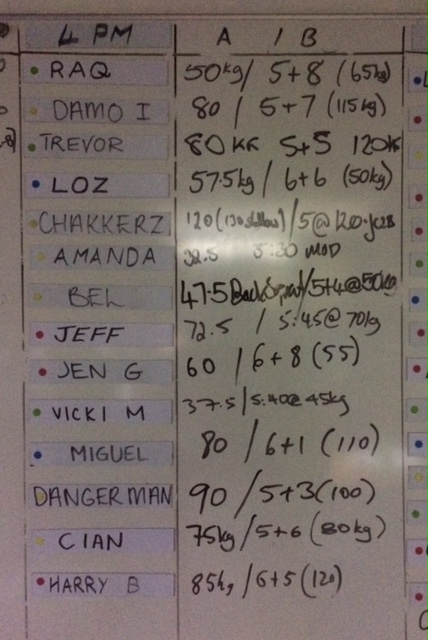 4 PM A / B
RAQ 50kg / 5+8 (65kg)
DAMO I 80 / 5+7 (115kg)
TREVOR 80KG 5+5 120KG
LOZ 57.5kg / 6+6 (50kg)
CHAKKERZ 120 (130 shallow) / 5@120kg
AMANDA 32.5 5:30 MOD
BEL 47.5 Back Squat / 5+4@50kg
JEFF 72.5 / 5:45@70kg
JEN G 60 / 6+8 (55)
VICKI M 37.5 / 5:40@45kg
MIGUEL 80 / 6+1 (110)
DANGERMAN 90 / 5+3(100)
CIAN 75kg / 5+6 (80kg)
HARRY B 85kg / 6+5 (120)